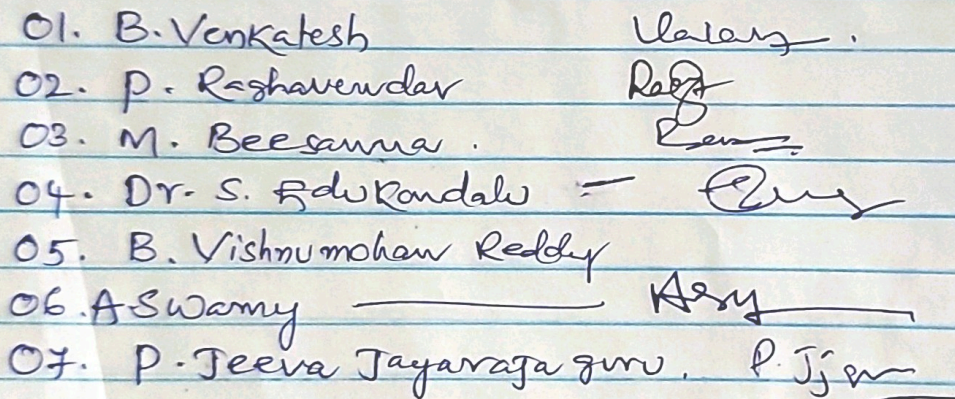 01. B. Venkatesh
02. P. Raghavendar
03. M. Beesanna.
04. Dr. S. Edukondalu -
05. B. Vishnumohan Reddy
06. A Swamy
07. P. Jeeva Jayaraja guru.